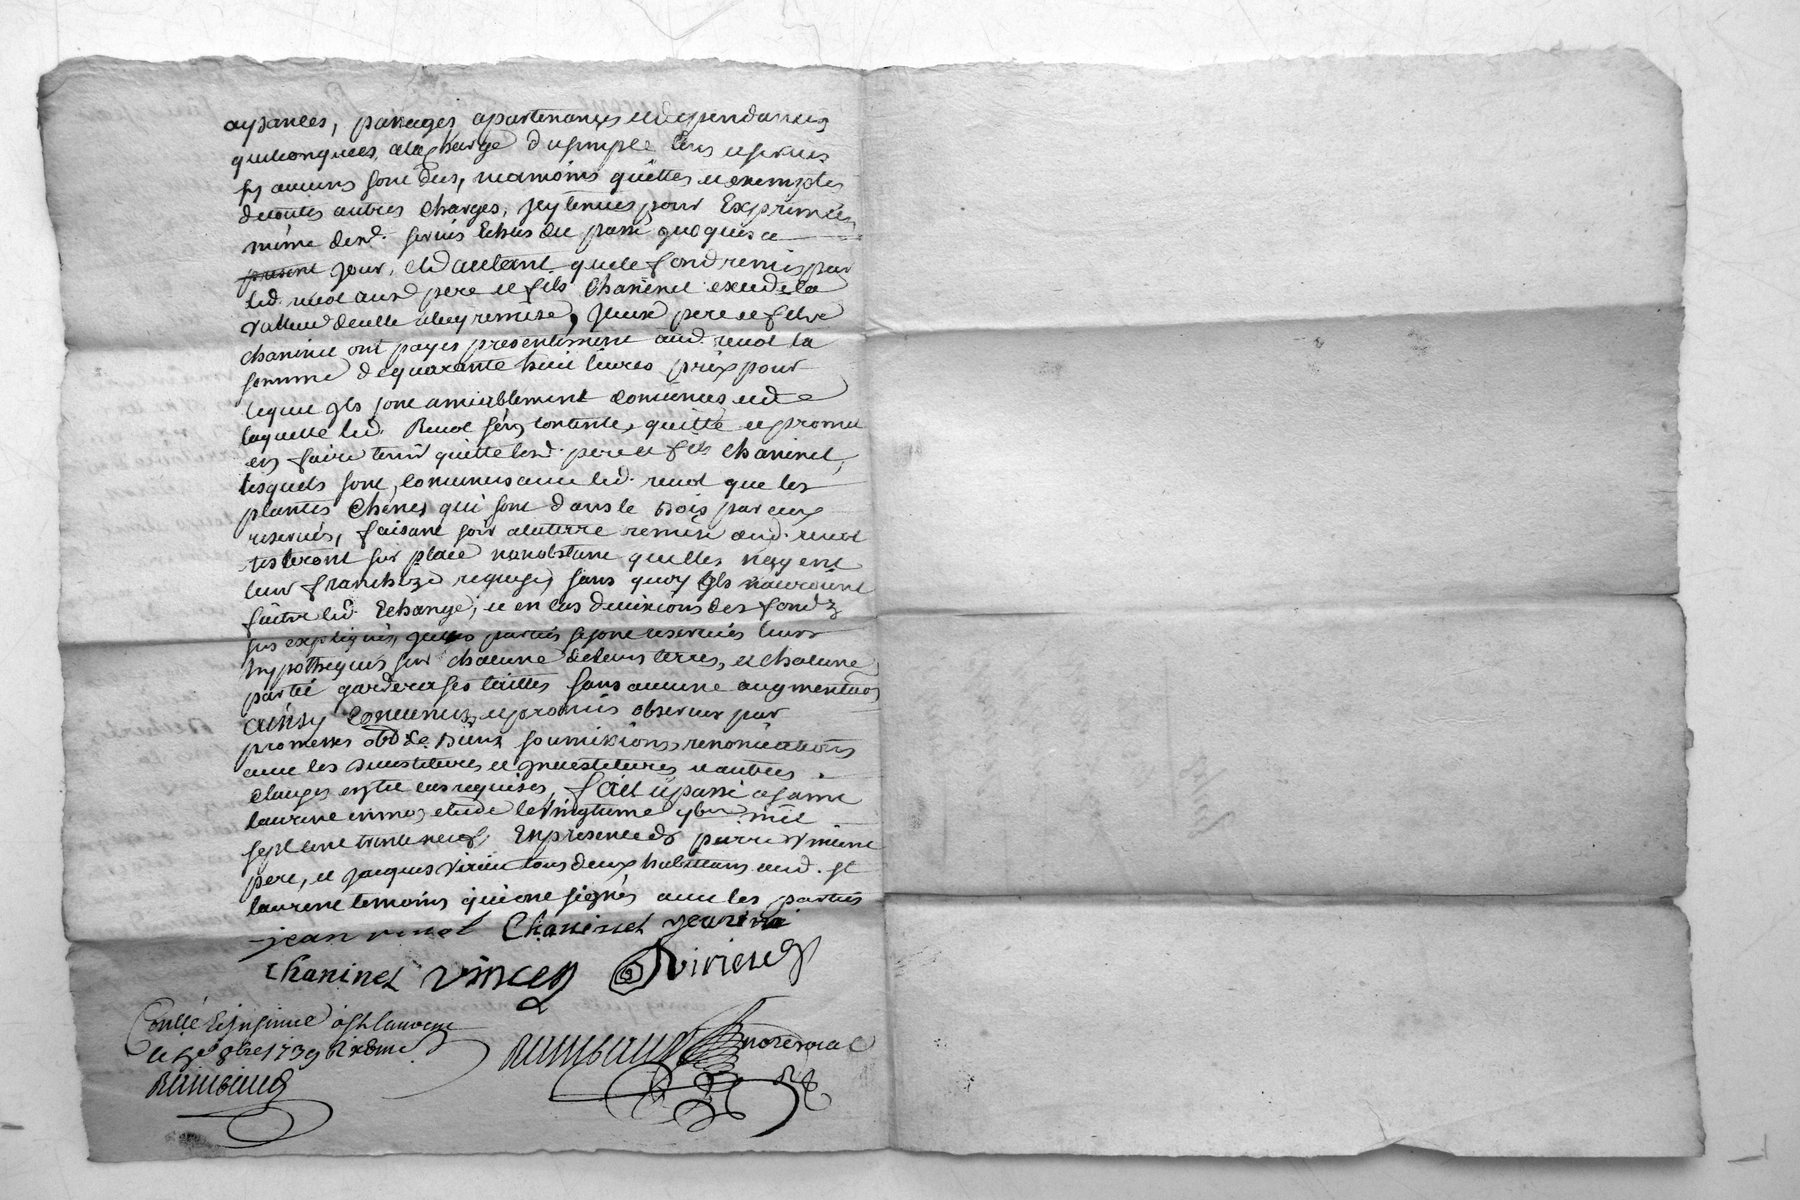 aysances, passages apartenances et dependances
quelconques, a la charge du simple cens et servis
sy aucuns sont deus, neanmoins quittes et exemptes
de toutes autres charges, icy tenues pour Exprimées
même desd. servis Echus du passé jusques a ce
present jour, et d'autant que le fond remis par
led. revol ausd pere et fils Chaninel excede la
valleur de celle a luy remise, iceux pere et fils
chaninel ont payes presentement aud. revol la
somme de quarante huit livres prix pour
lequel ils sont amiablement convenus et de
laquelle led. Revol s'en contente, quitte et promet
en faire tenir quitte lesd. pere et fils chaninel,
lesquels sont convenus avec led. revol que les
plantes chenes qui sont dans le Bois par eux
reservés, faisant soir a la terre remise aud. revol
resteront sur place nonobstant quelles nayent
leur franchize requise, sans quoy ils n'auroient
fait led. Echange, et en cas d'evixions des fondz
sus expliqués, les parties se sont reservées leurs
hypotheques sur chacune de leurs terres, et chacune
partie gardera ses tailles sans aucune augmentation
ainsy convenus et promis observer par
promesses obd. de Biens soumixions, renonciations
avec les devestitures et investitures et autres
clauses en tel cas requises, fait et passé a saint
laurent en mon etude le vingtieme 7bre mil
sept cent trente neuf. En presence de pierre vincent
pere, et jacques virieu tous deux habitans aud. st
laurent temoins qui ont signés avec les parties
jean revol Chaninel
chaninel vincen virieu
Conllé et insinué a st laurent
le 8bre 1739
Raimbaud
Raimbaud notre roial